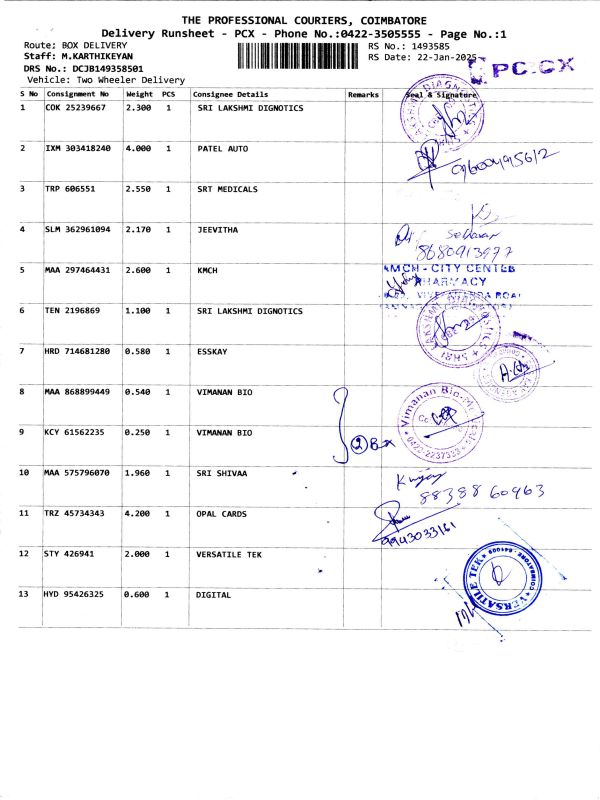 THE PROFESSIONAL COURIERS, COIMBATORE
Delivery Runsheet - PCX - Phone No.:0422-3505555 - Page No.:1
Route: BOX DELIVERY
RS No.: 1493585
Staff: M.KARTHIKEYAN
RS Date: 22-Jan-2025
PC.CX
DRS No.: DCJB149358501
Vehicle: Two Wheeler Delivery
S No Consignment No Weight PCS Consignee Details Remarks Seal & Signature
1 COK 25239667 2.300 1 SRI LAKSHMI DIGNOTICS
2 IXM 303418240 4.000 1 PATEL AUTO
3 TRP 606551 2.550 1 SRT MEDICALS
4 SLM 362961094 2.170 1 JEEVITHA
8680913977
5 MAA 297464431 2.600 1 KMCH
KMCH - CITY CENTER
PHARMACY
6 TEN 2196869 1.100 1 SRI LAKSHMI DIGNOTICS
7 HRD 714681280 0.580 1 ESSKAY
8 MAA 868899449 0.540 1 VIMANAN BIO
9 KCY 61562235 0.250 1 VIMANAN BIO
2 Bx
10 MAA 575796070 1.960 1 SRI SHIVAA
88388 60463
11 TRZ 45734343 4.200 1 OPAL CARDS
9943033161
12 STY 426941 2.000 1 VERSATILE TEK
VERSATILE TEK
13 HYD 95426325 0.600 1 DIGITAL